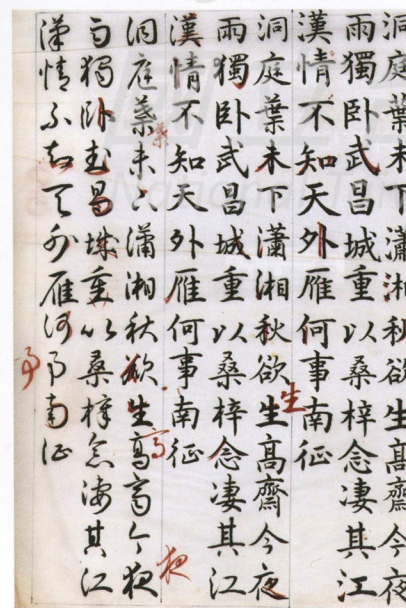 洞庭葉未下瀟湘秋欲生高齋今夜
雨獨卧武昌城重以桑梓念凄其江
漢情不知天外雁何事南征
洞庭葉未下瀟湘秋欲生高齋今夜
雨獨卧武昌城重以桑梓念凄其江
漢情不知天外雁何事南征
洞庭葉未下瀟湘秋欲生高齋今夜
雨獨卧武昌城重以桑梓念凄其江
漢情不知天外雁何事南征
生
葉
高
夜
事
National